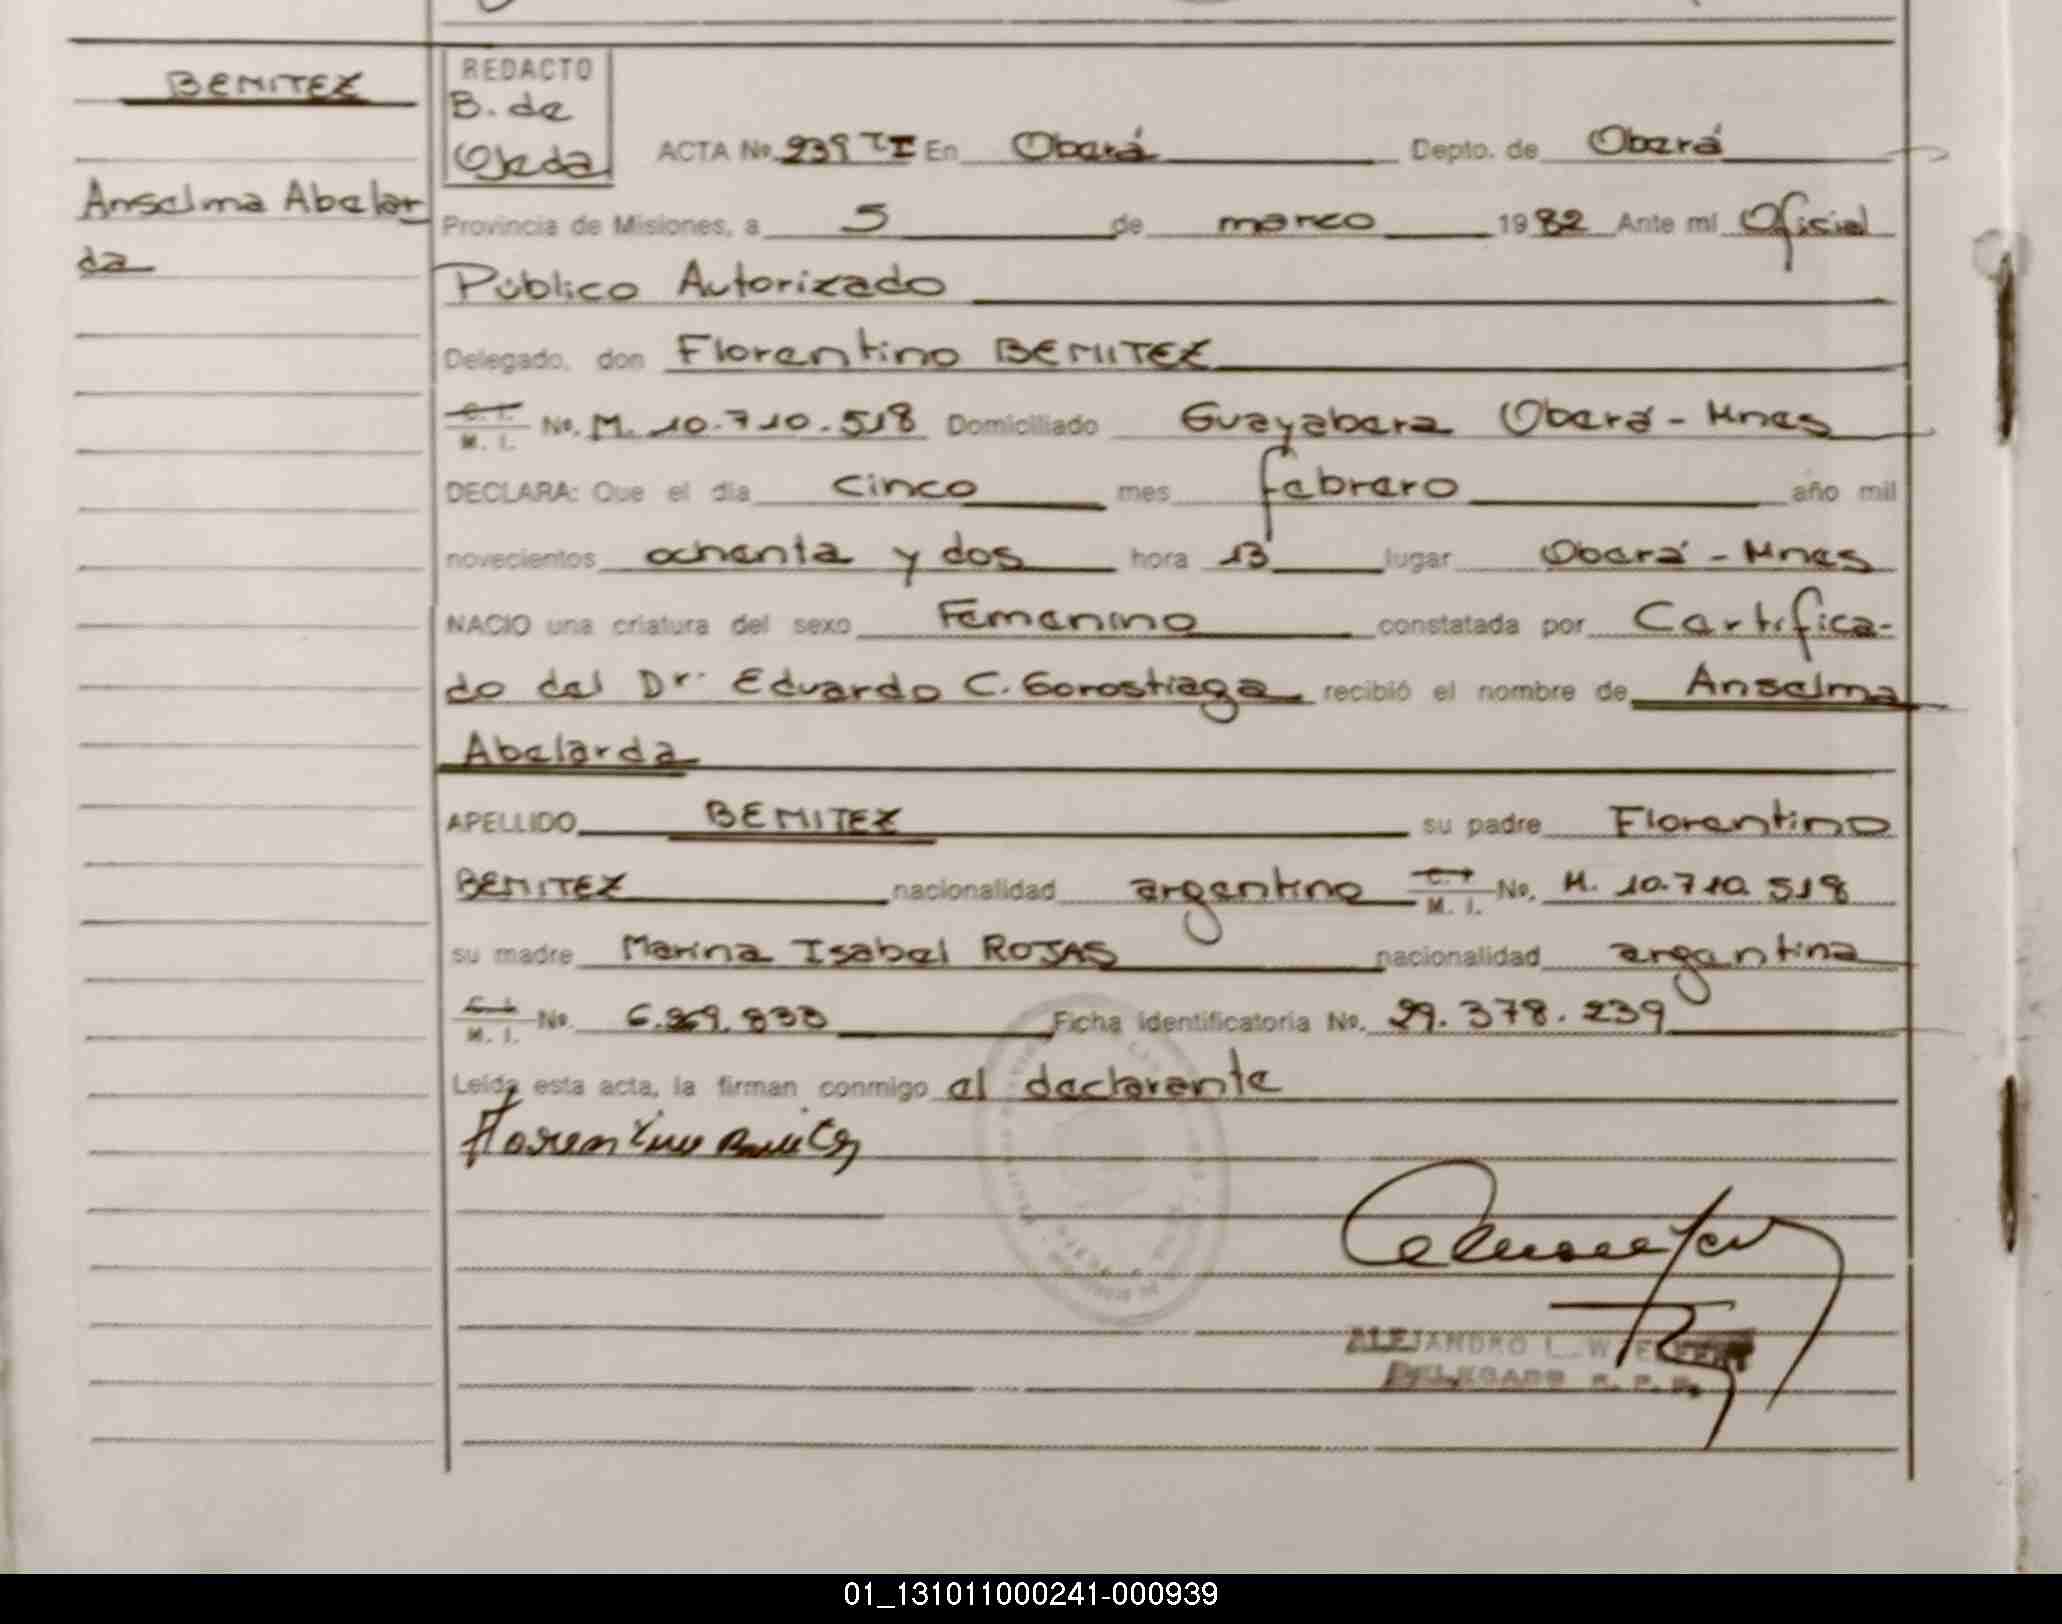 BENITEZ
Anselma Abelar
da
REDACTO
B. de
Ojeda
ACTA No. 239 TI En Oberá Depto. de Oberá
Provincia de Misiones, a 5 de marzo 1982 Ante mí Oficial
Público Autorizado
Delegado, don Florentino BENITEZ
C. I. M. I. No. M. 10.710.518 Domiciliado Guayabera Oberá - Mnes
DECLARA: Que el día cinco mes febrero año mil
novecientos ochenta y dos hora 13 lugar Oberá - Mnes
NACIO una criatura del sexo Femenino constatada por Certifica-
do del Dr. Eduardo C. Gorostiaga recibió el nombre de Anselma
Abelarda
APELLIDO BENITEZ su padre Florentino
BENITEZ nacionalidad argentino C. I. M. I. No. M. 10.710.518
su madre Marina Isabel ROJAS nacionalidad argentina
C. I. M. I. No. 6.269.833 Ficha identificatoria No. 29.378.239
Leída esta acta, la firman conmigo el declarante
Florentino Benitez
ALEJANDRO L. W.
DELEGADO R. P. P.
01_131011000241-000939